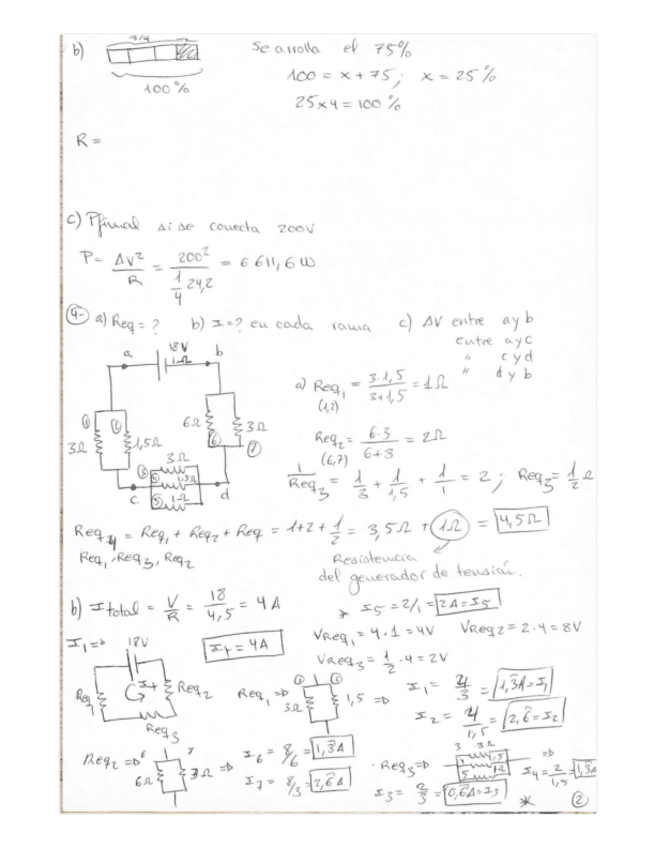 b) 3/4 Se arrolla el 75%
100% 100 = x + 75; x = 25%
25x4 = 100%
R =
c) Pfinal si se conecta 200V
P = ΔV²/R = 200²/(1/4 24,2) = 6611,6 W
4- a) Req = ? b) I = ? en cada rama c) ΔV entre a y b
entre a y c
" c y d
" d y b
a 18V 1Ω b
a) Req1 = 3·1,5/3+1,5 = 1Ω
(1,2)
3Ω 1,5Ω 6Ω 3Ω
Req2 = 6·3/6+3 = 2Ω
(6,7)
3Ω 1,5Ω 1Ω
c d
1/Req3 = 1/3 + 1/1,5 + 1/1 = 2; Req3 = 1/2 Ω
Req4 = Req1 + Req2 + Req = 1+2+1/2 = 3,5Ω + 1Ω = 4,5Ω
Req1, Req3, Req2 Resistencia
del generador de tensión.
b) Itotal = V/R = 18/4,5 = 4A * I5 = 2/1 = 2A = I5
I1 => 18V IT = 4A VReq1 = 4·1 = 4V VReq2 = 2·4 = 8V
VReq3 = 1/2·4 = 2V
Req1 IT Req2 Req3
Req1 => 3Ω 1,5 => I1 = 4/3 = 1,3A = I1
I2 = 4/1,5 = 2,6 = I2
Req2 => 6 7 6Ω 3Ω => I6 = 8/6 = 1,3A
I7 = 8/3 = 2,6A
· Req3 => 3 3Ω 1,5 5 1Ω => I4 = 2/1,5 = 1,3A
I3 = 2/3 = 0,6A = I3 * 2